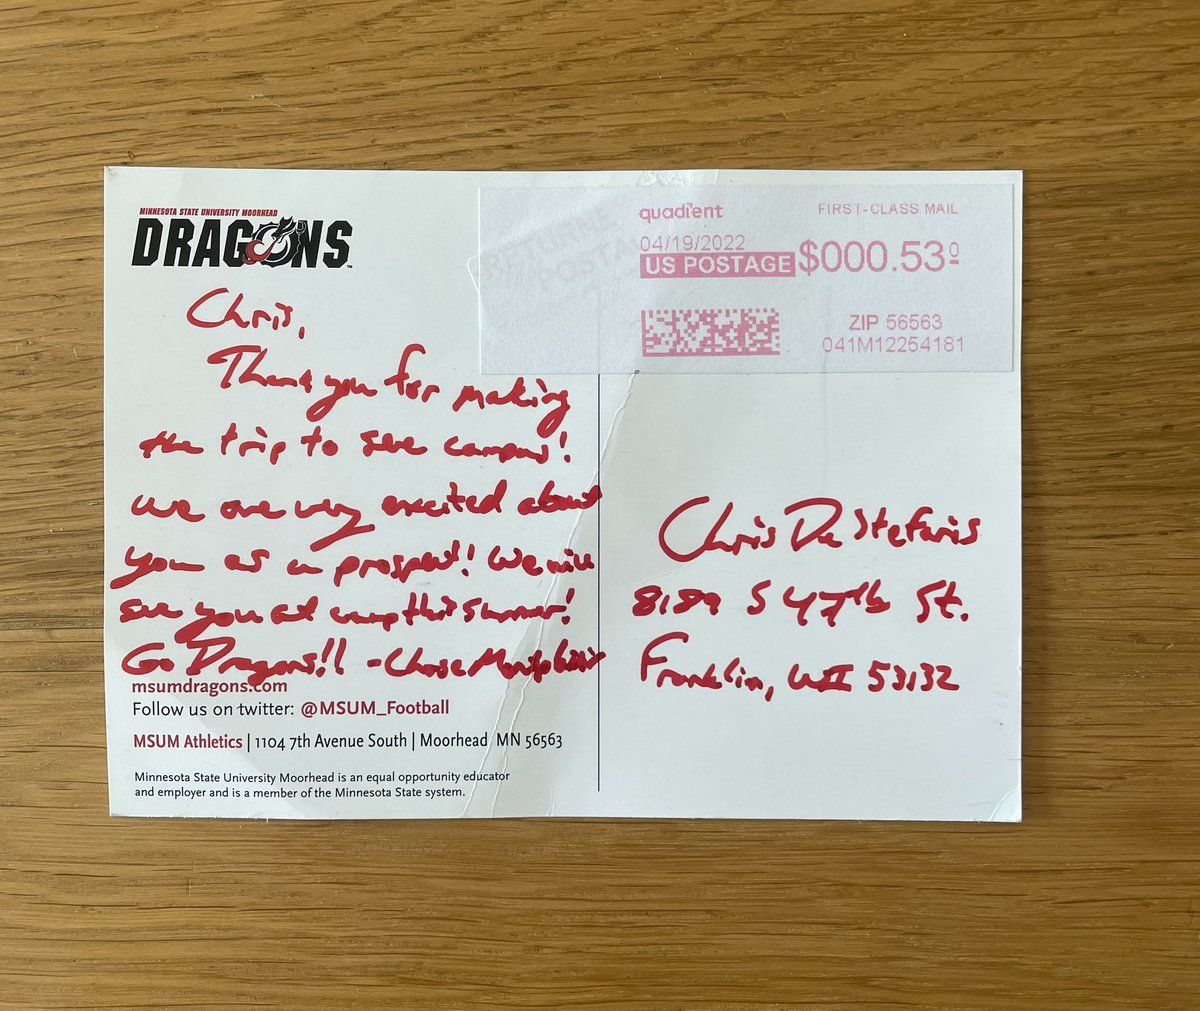 MINNESOTA STATE UNIVERSITY MOORHEAD
DRAGONS
Chris,
Thank you for making
the trip to see campus!
we are very excited about
you as a prospect! We will
see you at camp this summer!
Go Dragons!! - Chase
msumdragons.com
Follow us on twitter: @MSUM_Football
MSUM Athletics | 1104 7th Avenue South | Moorhead MN 56563
Minnesota State University Moorhead is an equal opportunity educator
and employer and is a member of the Minnesota State system.
quadient
FIRST-CLASS MAIL
04/19/2022
US POSTAGE $000.53⁰
ZIP 56563
041M12254181
Chris DeStefanis
8189 S 47th St.
Franklin, WI 53132